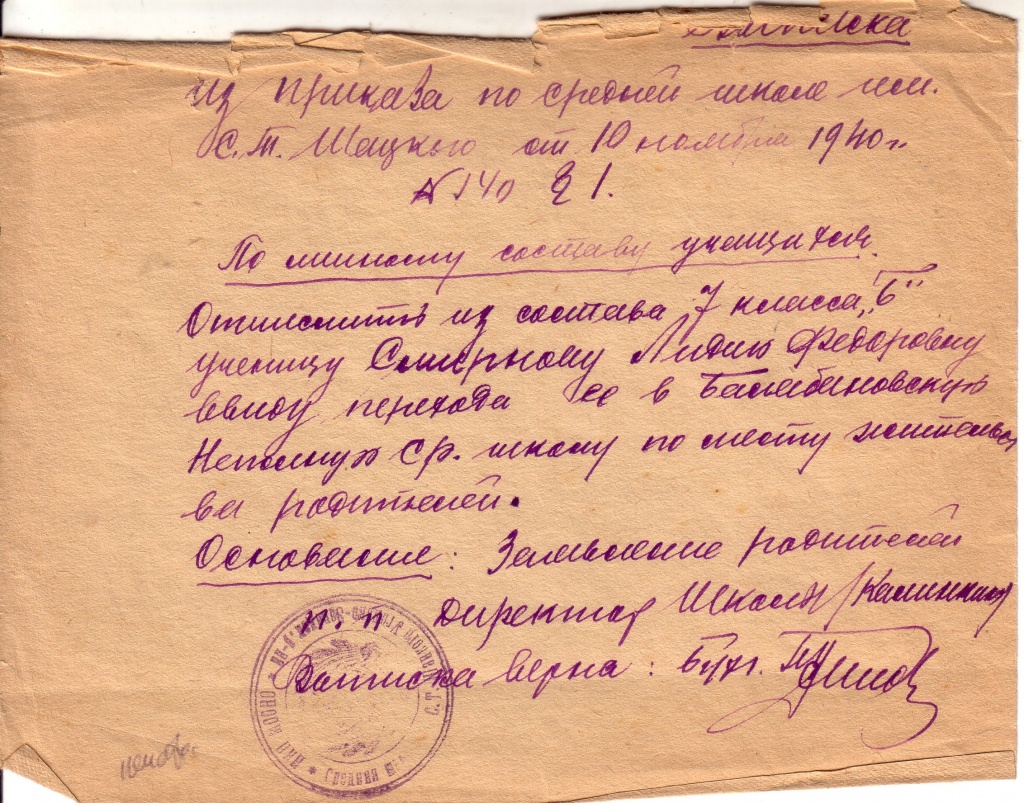 Выписка
из приказа по средней школе им.
С.Т. Шацкого от 10 ноября 1940 г.
№ 140 § 1.
По личному составу учащихся.
Отчислить из состава 7 класса „Б"
ученицу Смирнову Лидию Федоровну
ввиду перехода ее в Балабановскую
Неполную ср. школу по месту жительст
ва родителей.
Основание: Заявление родителей
п. п Директор Школы /Калинкин/
Выписка верна: Бухг.
Средняя С.Т.